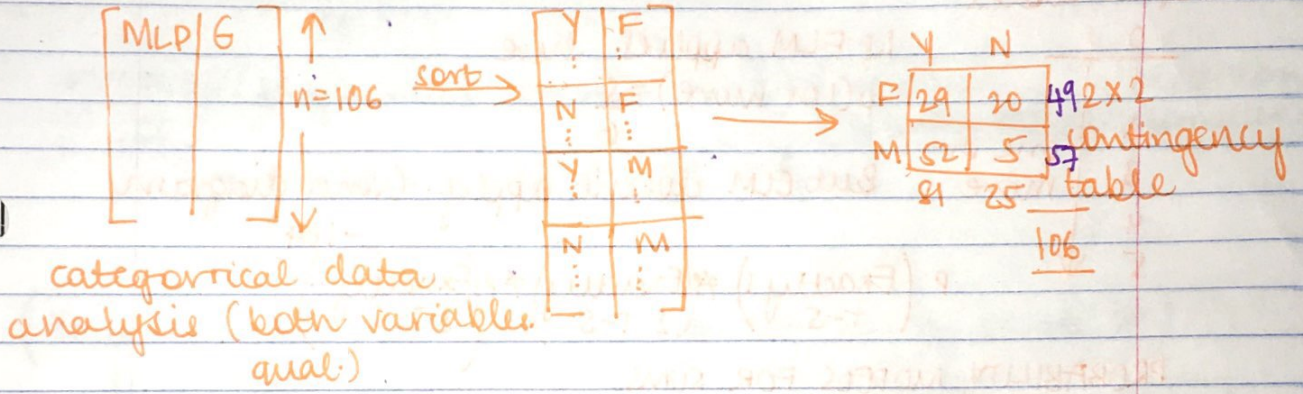 MLP G
n=106
sort
Y F
N F
Y M
N M
Y N
F 29 20 49 2x2
M 52 5 57 contingency
81 25 table
106
categorrical data
analysis (both variables
qual.)